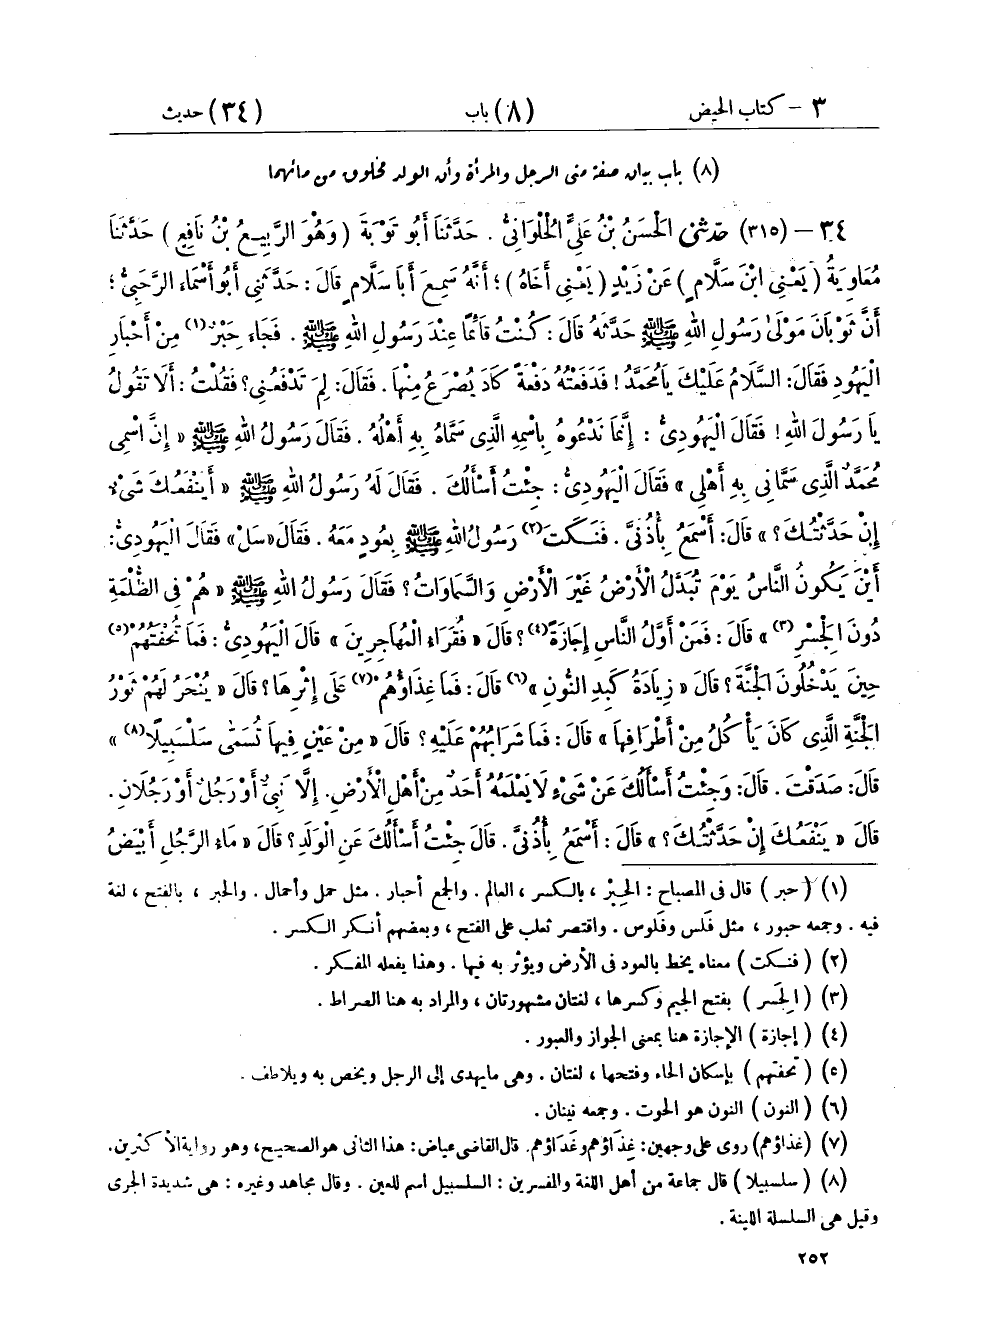 ٣ - كتاب الحيض (٨) باب (٣٤) حديث
(٨) باب بيان صفة منى الرجل والمرأة وأن الولد مخلوق من مائهما
٣٤ - (٣١٥) حدثني الْحَسَنُ بْنُ عَلِيٍّ الْحُلْوَانِيُّ . حَدَّثَنَا أَبُو تَوْبَةَ ( وَهُوَ الرَّبِيعُ بْنُ نَافِعٍ ) حَدَّثَنَا
مُعَاوِيَةُ ( يَعْنِي ابْنَ سَلَّامٍ ) عَنْ زَيْدٍ ( يَعْنِي أَخَاهُ ) ؛ أَنَّهُ سَمِعَ أَبَا سَلَّامٍ قَالَ : حَدَّثَنِي أَبُو أَسْمَاءَ الرَّحَبِيُّ ؛
أَنَّ ثَوْبَانَ مَوْلَىٰ رَسُولِ اللهِ ﷺ حَدَّثَهُ قَالَ : كُنْتُ قَائِمًا عِنْدَ رَسُولِ اللهِ ﷺ . فَجَاءَ حَبْرٌ(١) مِنْ أَحْبَارِ
الْيَهُودِ فَقَالَ : السَّلَامُ عَلَيْكَ يَا مُحَمَّدُ ! فَدَفَعْتُهُ دَفْعَةً كَادَ يُصْرَعُ مِنْهَا . فَقَالَ : لِمَ تَدْفَعُنِي؟ فَقُلْتُ : أَلَا تَقُولُ
يَا رَسُولَ اللهِ ! فَقَالَ الْيَهُودِيُّ : إِنَّمَا نَدْعُوهُ بِاسْمِهِ الَّذِي سَمَّاهُ بِهِ أَهْلُهُ . فَقَالَ رَسُولُ اللهِ ﷺ « إِنَّ اسْمِي
مُحَمَّدٌ الَّذِي سَمَّانِي بِهِ أَهْلِي » فَقَالَ الْيَهُودِيُّ : جِئْتُ أَسْأَلُكَ . فَقَالَ لَهُ رَسُولُ اللهِ ﷺ « أَيَنْفَعُكَ شَيْءٌ
إِنْ حَدَّثْتُكَ؟ » قَالَ : أَسْمَعُ بِأُذُنَيَّ . فَنَكَتَ(٢) رَسُولُ اللهِ ﷺ بِعُودٍ مَعَهُ . فَقَالَ « سَلْ » فَقَالَ الْيَهُودِيُّ :
أَيْنَ يَكُونُ النَّاسُ يَوْمَ تُبَدَّلُ الْأَرْضُ غَيْرَ الْأَرْضِ وَالسَّمَاوَاتُ؟ فَقَالَ رَسُولُ اللهِ ﷺ « هُمْ فِي الظُّلْمَةِ
دُونَ الْجِسْرِ(٣) » قَالَ : فَمَنْ أَوَّلُ النَّاسِ إِجَازَةً(٤) ؟ قَالَ « فُقَرَاءُ الْمُهَاجِرِينَ » قَالَ الْيَهُودِيُّ : فَمَا تُحْفَتُهُمْ(٥)
حِينَ يَدْخُلُونَ الْجَنَّةَ ؟ قَالَ « زِيَادَةُ كَبِدِ النُّونِ »(٦) قَالَ : فَمَا غِذَاؤُهُمْ(٧) عَلَى إِثْرِهَا ؟ قَالَ « يُنْحَرُ لَهُمْ ثَوْرُ
الْجَنَّةِ الَّذِي كَانَ يَأْكُلُ مِنْ أَطْرَافِهَا » قَالَ : فَمَا شَرَابُهُمْ عَلَيْهِ ؟ قَالَ « مِنْ عَيْنٍ فِيهَا تُسَمَّىٰ سَلْسَبِيلًا(٨) »
قَالَ : صَدَقْتَ . قَالَ : وَجِئْتُ أَسْأَلُكَ عَنْ شَيْءٍ لَا يَعْلَمُهُ أَحَدٌ مِنْ أَهْلِ الْأَرْضِ . إِلَّا نَبِيٌّ أَوْ رَجُلٌ أَوْ رَجُلَانِ .
قَالَ « يَنْفَعُكَ إِنْ حَدَّثْتُكَ ؟ » قَالَ : أَسْمَعُ بِأُذُنَيَّ . قَالَ جِئْتُ أَسْأَلُكَ عَنِ الْوَلَدِ ؟ قَالَ « مَاءُ الرَّجُلِ أَبْيَضُ
(١) ( حبر ) قال فى المصباح : الحِبْر ، بالكسر ، العالم . والجمع أحبار . مثل حمل وأحمال . والحبر ، بالفتح ، لغة
فيه . وجمعه حبور ، مثل فلس وفلوس . واقتصر ثعلب على الفتح ، وبعضهم أنكر الكسر .
(٢) ( فنكت ) معناه يخط بالعود فى الأرض ويؤثر به فيها . وهذا يفعله المفكر .
(٣) ( الجَسر ) بفتح الجيم وكسرها ، لغتان مشهورتان ، والمراد به هنا الصراط .
(٤) ( إجازة ) الإجازة هنا بمعنى الجواز والعبور .
(٥) ( تحفتهم ) بإسكان الحاء وفتحها ، لغتان . وهى ما يهدى إلى الرجل ويخص به ويلاطف .
(٦) ( النون ) النون هو الحوت . وجمعه نينان .
(٧) (غذاؤهم) روى على وجهين : غِذَاؤهم وغَدَاؤهم. قال القاضى عياض : هذا الثانى هو الصحيح، وهو رواية الأكثرين.
(٨) ( سلسبيلا ) قال جماعة من أهل اللغة والمفسرين : السلسبيل اسم للعين . وقال مجاهد وغيره : هى شديدة الجرى
وقيل هى السلسلة اللينة .
٢٥٢